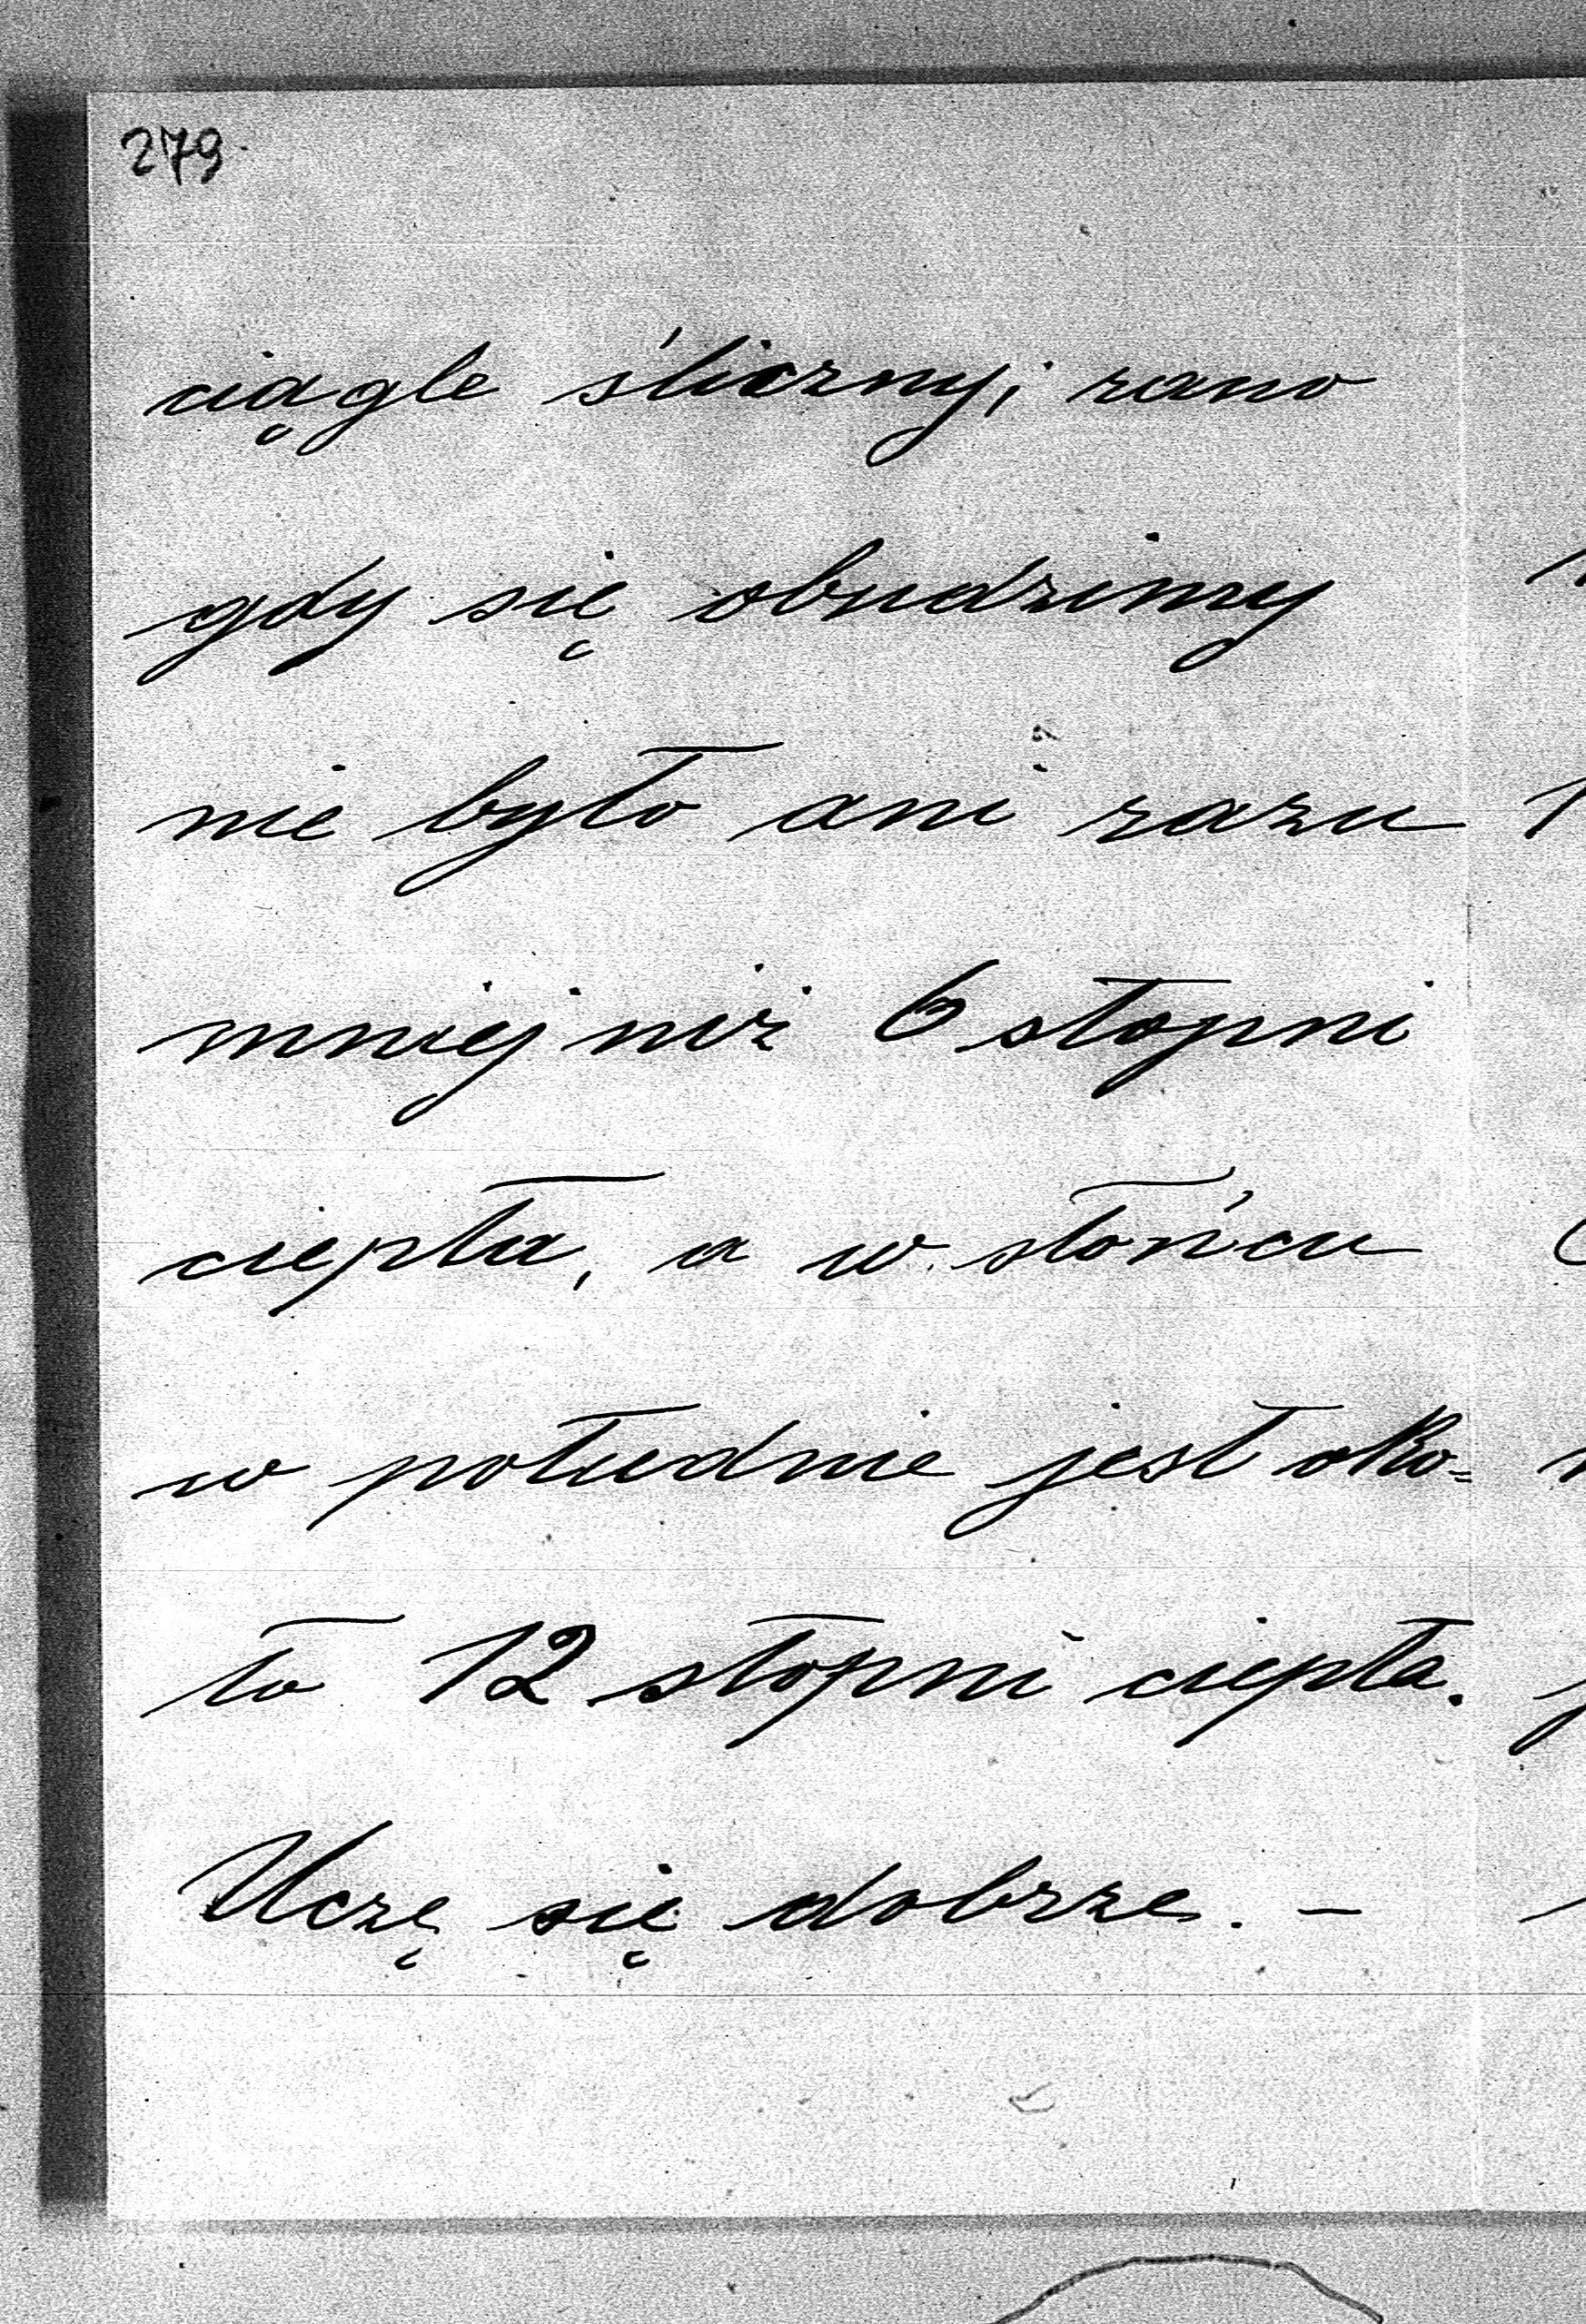 279.
ciągle śliczny; rano
gdy się obudzimy
nie było ani razu
mniej niż 6 stopni
ciepła, a w słońcu
w południe jest oko=
ło 12 stopni ciepła.
Uczę się dobrze. –